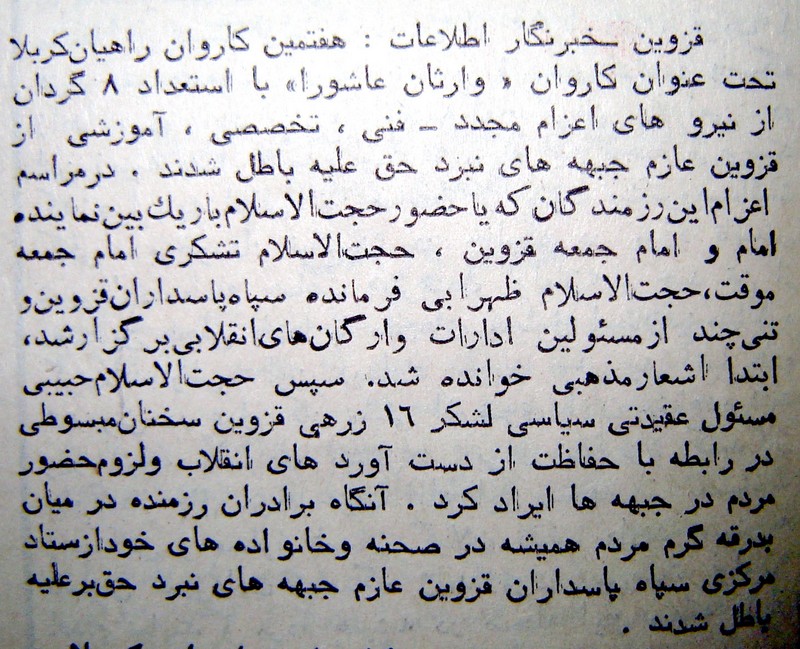 قزوین ــ خبرنگار اطلاعات : هفتمین کاروان راهیان‌کربلا
تحت عنوان کاروان « وارثان عاشورا» با استعداد ۸ گردان
از نیرو های اعزام مجدد ــ فنی ، تخصصی ، آموزشی از
قزوین عازم جبهه های نبرد حق علیه باطل شدند . درمراسم
اعزام‌این‌رزمندگان که یاحضورحجت‌الاسلام‌باریك‌بین‌نماینده
امام و امام جمعه قزوین ، حجت‌الاسلام تشکری امام جمعه
موقت،حجت‌الاسلام ظهرابی فرمانده سپاه‌پاسداران‌قزوین‌و
تنی‌چند ازمسئولین ادارات وارگان‌های‌انقلابی‌برگزارشد،
ابتدا اشعارمذهبی خوانده شد. سپس حجت‌الاسلام‌حبیبی
مسئول عقیدتی سیاسی لشکر ۱۶ زرهی قزوین سخنان‌مبسوطی
در رابطه با حفاظت از دست آورد های انقلاب ولزوم‌حضور
مردم در جبهه ها ایراد کرد . آنگاه برادران رزمنده در میان
بدرقه گرم مردم همیشه در صحنه وخانواده های خودازستاد
مرکزی سپاه پاسداران قزوین عازم جبهه های نبرد حق‌برعلیه
باطل شدند .